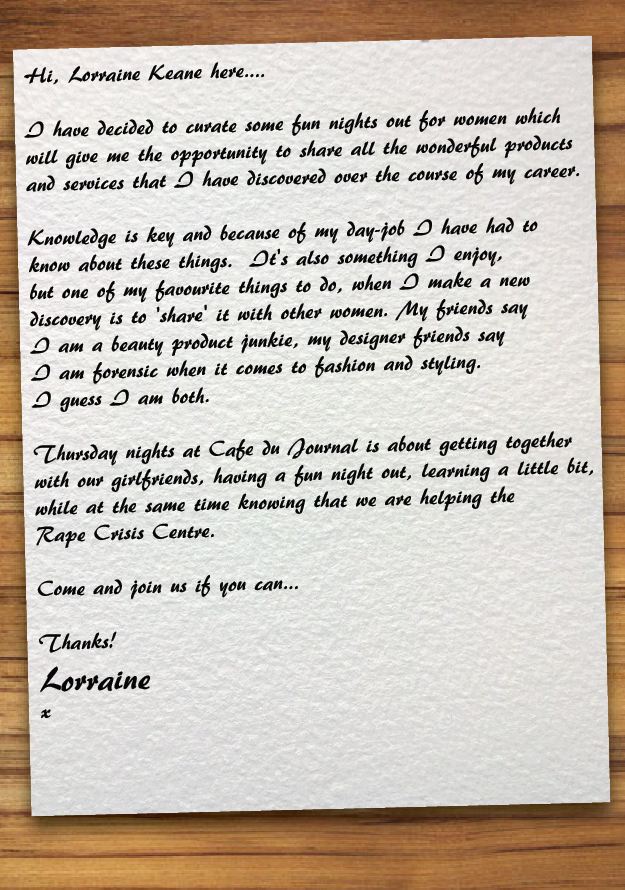 Hi, Lorraine Keane here....
I have decided to curate some fun nights out for women which
will give me the opportunity to share all the wonderful products
and services that I have discovered over the course of my career.
Knowledge is key and because of my day-job I have had to
know about these things. It's also something I enjoy,
but one of my favourite things to do, when I make a new
discovery is to 'share' it with other women. My friends say
I am a beauty product junkie, my designer friends say
I am forensic when it comes to fashion and styling.
I guess I am both.
Thursday nights at Cafe du Journal is about getting together
with our girlfriends, having a fun night out, learning a little bit,
while at the same time knowing that we are helping the
Rape Crisis Centre.
Come and join us if you can...
Thanks!
Lorraine
x